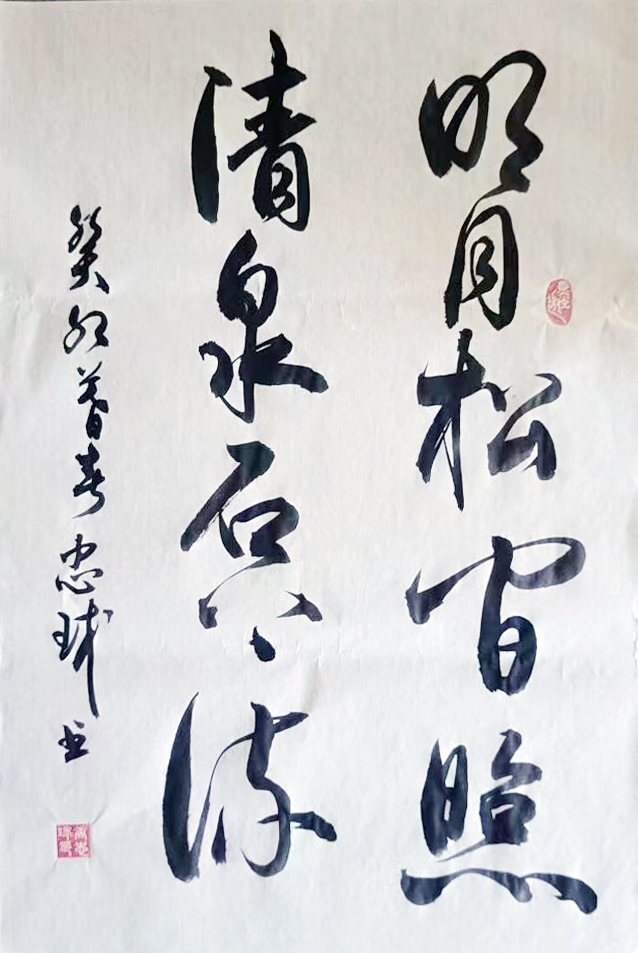 明月松間照
清泉石上流
癸卯暮春忠球书